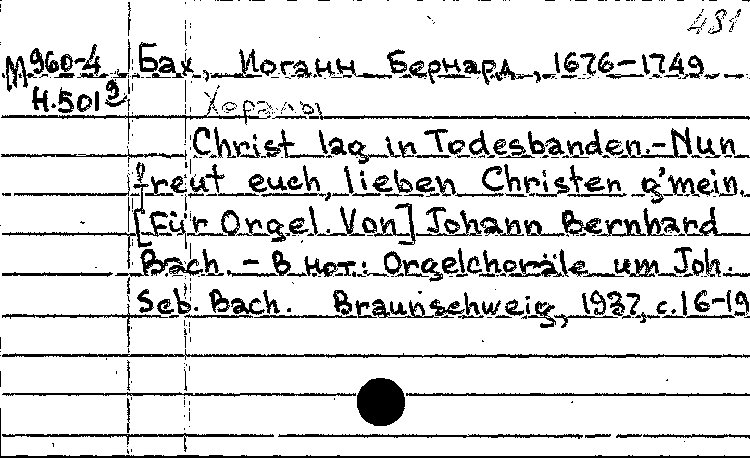 481
М960-4 Бах, Иоганн Бернард, 1676-1749
Н.501 Хоралы
Christ lag in Todesbanden.-Nun
freut euch, lieben Christen g'mein.
[Für Orgel. Von] Johann Bernhard
Bach. - В нот.: Orgelchoräle um Joh.
Seb. Bach. Braunschweig, 1937, с.16-19